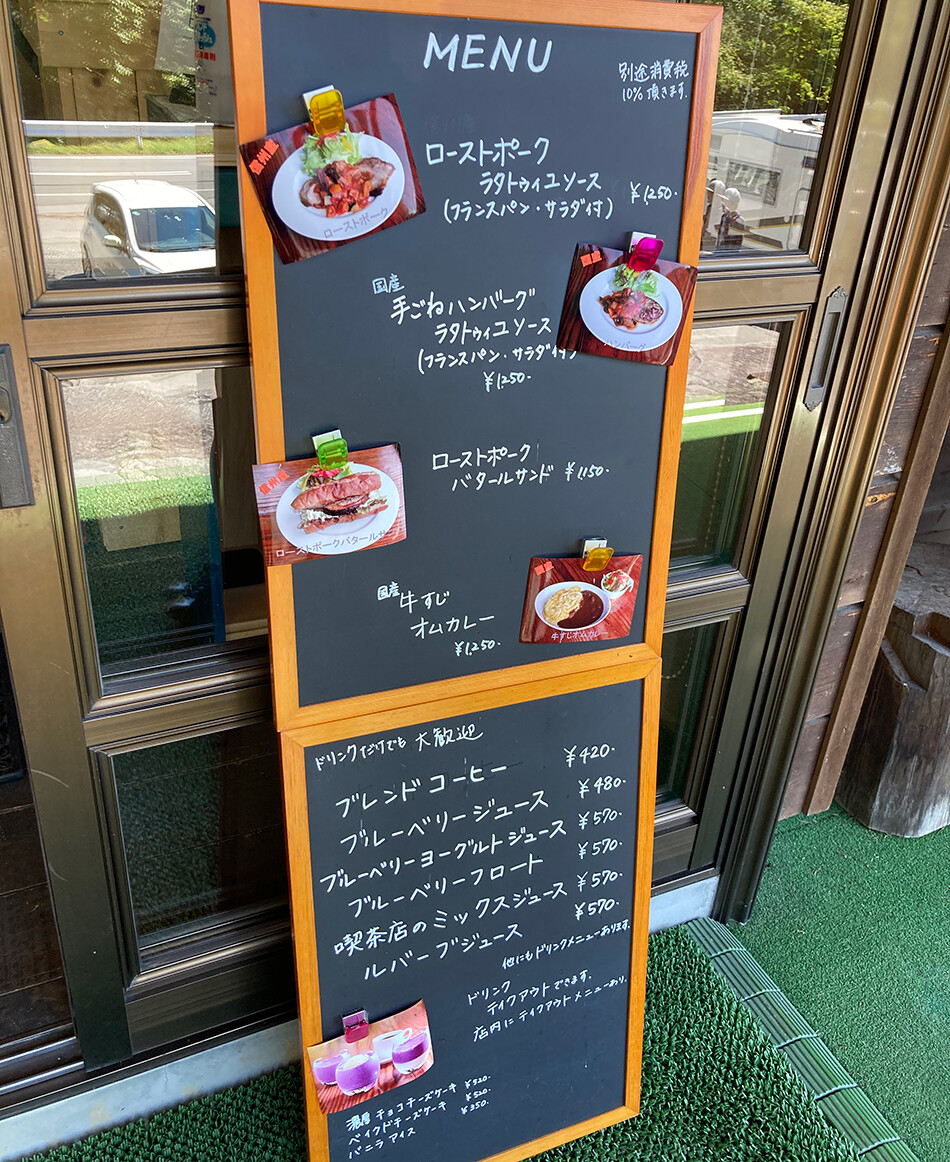 MENU
別途消費税
10%頂きます。
ローストポーク
ラタトゥイユソース
(フランスパン・サラダ付) ¥1,250-
信州産
ローストポーク
国産
手ごねハンバーグ
ラタトゥイユソース
(フランスパン・サラダ付)
¥1,250-
国産
ハンバーグ
ローストポーク
バタールサンド ¥1,150-
信州産
ローストポークバタールサンド
国産
牛すじ
オムカレー
¥1,250-
牛すじオムカレー
ドリンクだけでも 大歓迎
ブレンドコーヒー ¥420-
ブルーベリージュース ¥480-
ブルーベリーヨーグルトジュース ¥570-
ブルーベリーフロート ¥570-
喫茶店のミックスジュース ¥570-
ルバーブジュース ¥570-
他にもドリンクメニューあります。
ドリンク
テイクアウトできます。
店内にテイクアウトメニューあり。
濃厚チョコチーズケーキ ¥520-
ベイクドチーズケーキ ¥520-
バニラアイス ¥350-